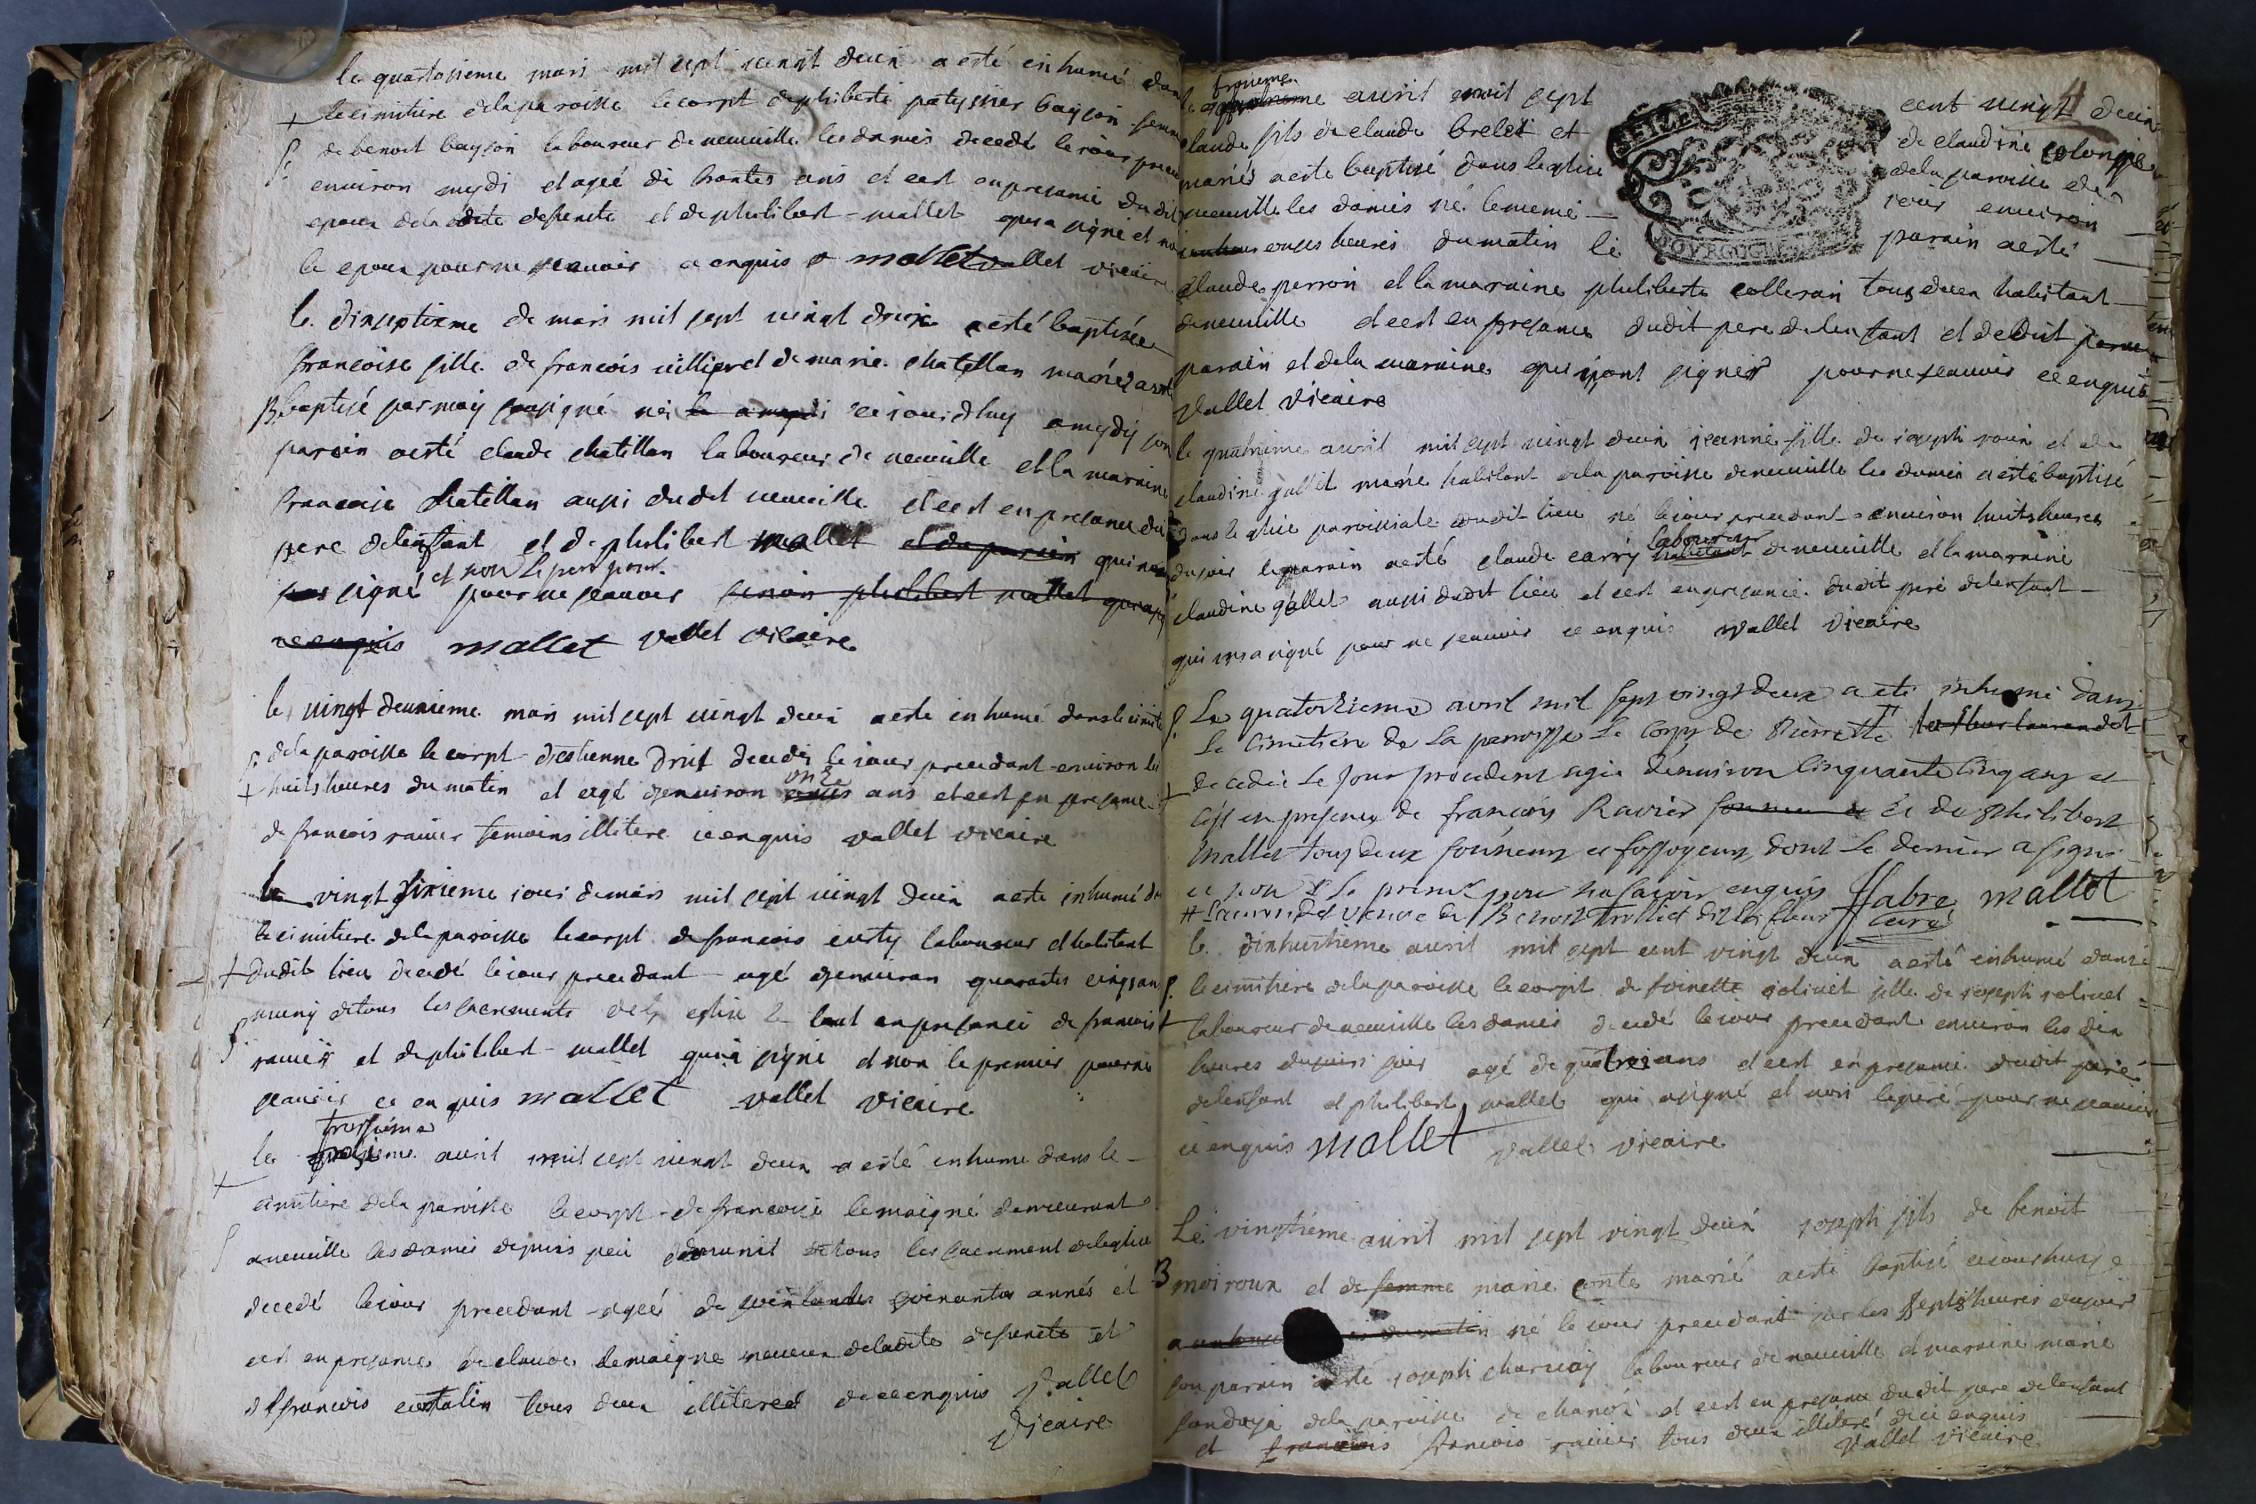 le quatorsieme mars mil sept vingt deux a esté inhumé dans
le cimitiere dela paroisse le corpt de philiberte bayson femme
de benoit bayson laboureur de neuville les dames decedé le jour
environ mydi et agée de trantes ans et cest en presance dudit
epoux dela dite defuncte et de philibert mallet qui a signé et non
le epoux pour ne sçauoir ce enquis mallet vallet vicaire
le dixseptieme de mars mil sept vingt deux a esté baptisée
francoise fille de francois et de marie chatillon mariés a esté
B baptisé par moy sousigné né ce jourdhuy a mydy son
parain a esté claude chatillon laboureur de neuville et la maraine
francoise chatillon aussi dudit neuville et cest en presance du
pere delenfant et de philibert mallet et du parain qui
signé et non le pere pour
pour ne sçauoir sinon philibert mallet
ce enquis mallet vallet vicaire
le vingt deuxieme mars mil sept vingt deux a esté inhumé dans le cimitiere
dela paroisse le corpt destienne drut decedé le jour precedant environ les
onze
+ huits heures du matin et agé denviron ans et cest en presance
de francois ravier temoins illitere ce enquis vallet vicaire
le vingt sixieme jour de mars mil sept vingt deux a esté inhumé dans
le cimitiere dela paroisse le corpt de francois laboureur et habitant
+ dudit lieu decedé le jour precedant agé denviron quarantes cinq ans
muny de tous les sacrements de l'eglise le tout en presance de francois
ravier et de philibert mallet qui a signé et non le premier pour ne
sçauoir ce enquis mallet vallet vicaire
troisieme
le avril mil sept vingt deux a esté inhumé dans le
cimitiere dela paroisse le corpt de francoise lemaigne demeurant
a neuville les dames depuis peu munit de tous les sacrement de leglise
decedé le jour precedant agée de soixantes années et
cest en presance de claude lemaigne neveux deladite defuncte et
de francois tous deux illiteres de ce enquis vallet
vicaire
4
le avril mil sept cent vingt deux
claude fils de claude brelet et de claudine
mariés a esté baptisé dans leglise dela paroisse de
neuville les dames né le meme jour environ
onses heures du matin le parain a esté
SEIZE
BOURGOGNE
claude perron et la maraine philiberte colleran tous deux habitant
de neuville et cest en presance dudit pere delenfant et dedit
parain et dela maraine qui nont signer pour ne sçauoir ce enquis
vallet vicaire
le avril mil sept vingt deux jeanne fille de joseph et de
claudine gallet marié habitant dela paroisse de neuville les dames a esté baptisé
dans leglise paroissiale dudit lieu né le jour precedant environ huits heures
laboureur
du soir le parain a esté claude carry habitant de neuville et la maraine
claudine gallet aussi dudit lieu et cest en presance dudit pere delenfant
qui na signé pour ne sçauoir ce enquis vallet vicaire
Le quatorzieme avril mil sept vingt deux a eté inhumé dans
Le cimetiere de La parroisse Le corps de Pierrette
decedée Le jour precedent agée d'environ cinquante cinq ans et
c'est en presence de françois Ravier et de philibert
mallet tous deux sonneurs et fossoyeurs dont Le dernier a signé
et non Le premier pour ne sçavoir enquis ffabre mallet
# Laurendet veuve de Benoit dit La fleur curé
le dixhuitieme avril mil sept cent vingt deux a esté enhumé dans
le cimitiere dela paroisse le corpt de foinette jolivet fille de joseph jolivet
laboureur de neuville les dames decedé le jour precedant environ les dix
heures du soir agé de quatre ans et cest en presance dudit pere
delenfant et philibert mallet qui a signé et non le pere pour ne sçauoir
ce enquis mallet vallet vicaire
Le vingtieme avril mil sept vingt deux joseph fils de benoit
B moiroux et de femme marie conte marié a esté baptisé ce jourdhuy
né le jour precedant sur les septs heures du soir
son parain a esté joseph charvay laboureur de neuville et maraine marie
dela paroisse de et cest en presance dudit pere delenfant
et francois francois ravier tous deux illiteré de ce enquis
vallet vicaire